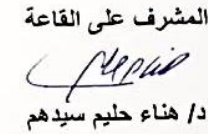 المشرف على القاعة
د/ هناء حليم سيدهم